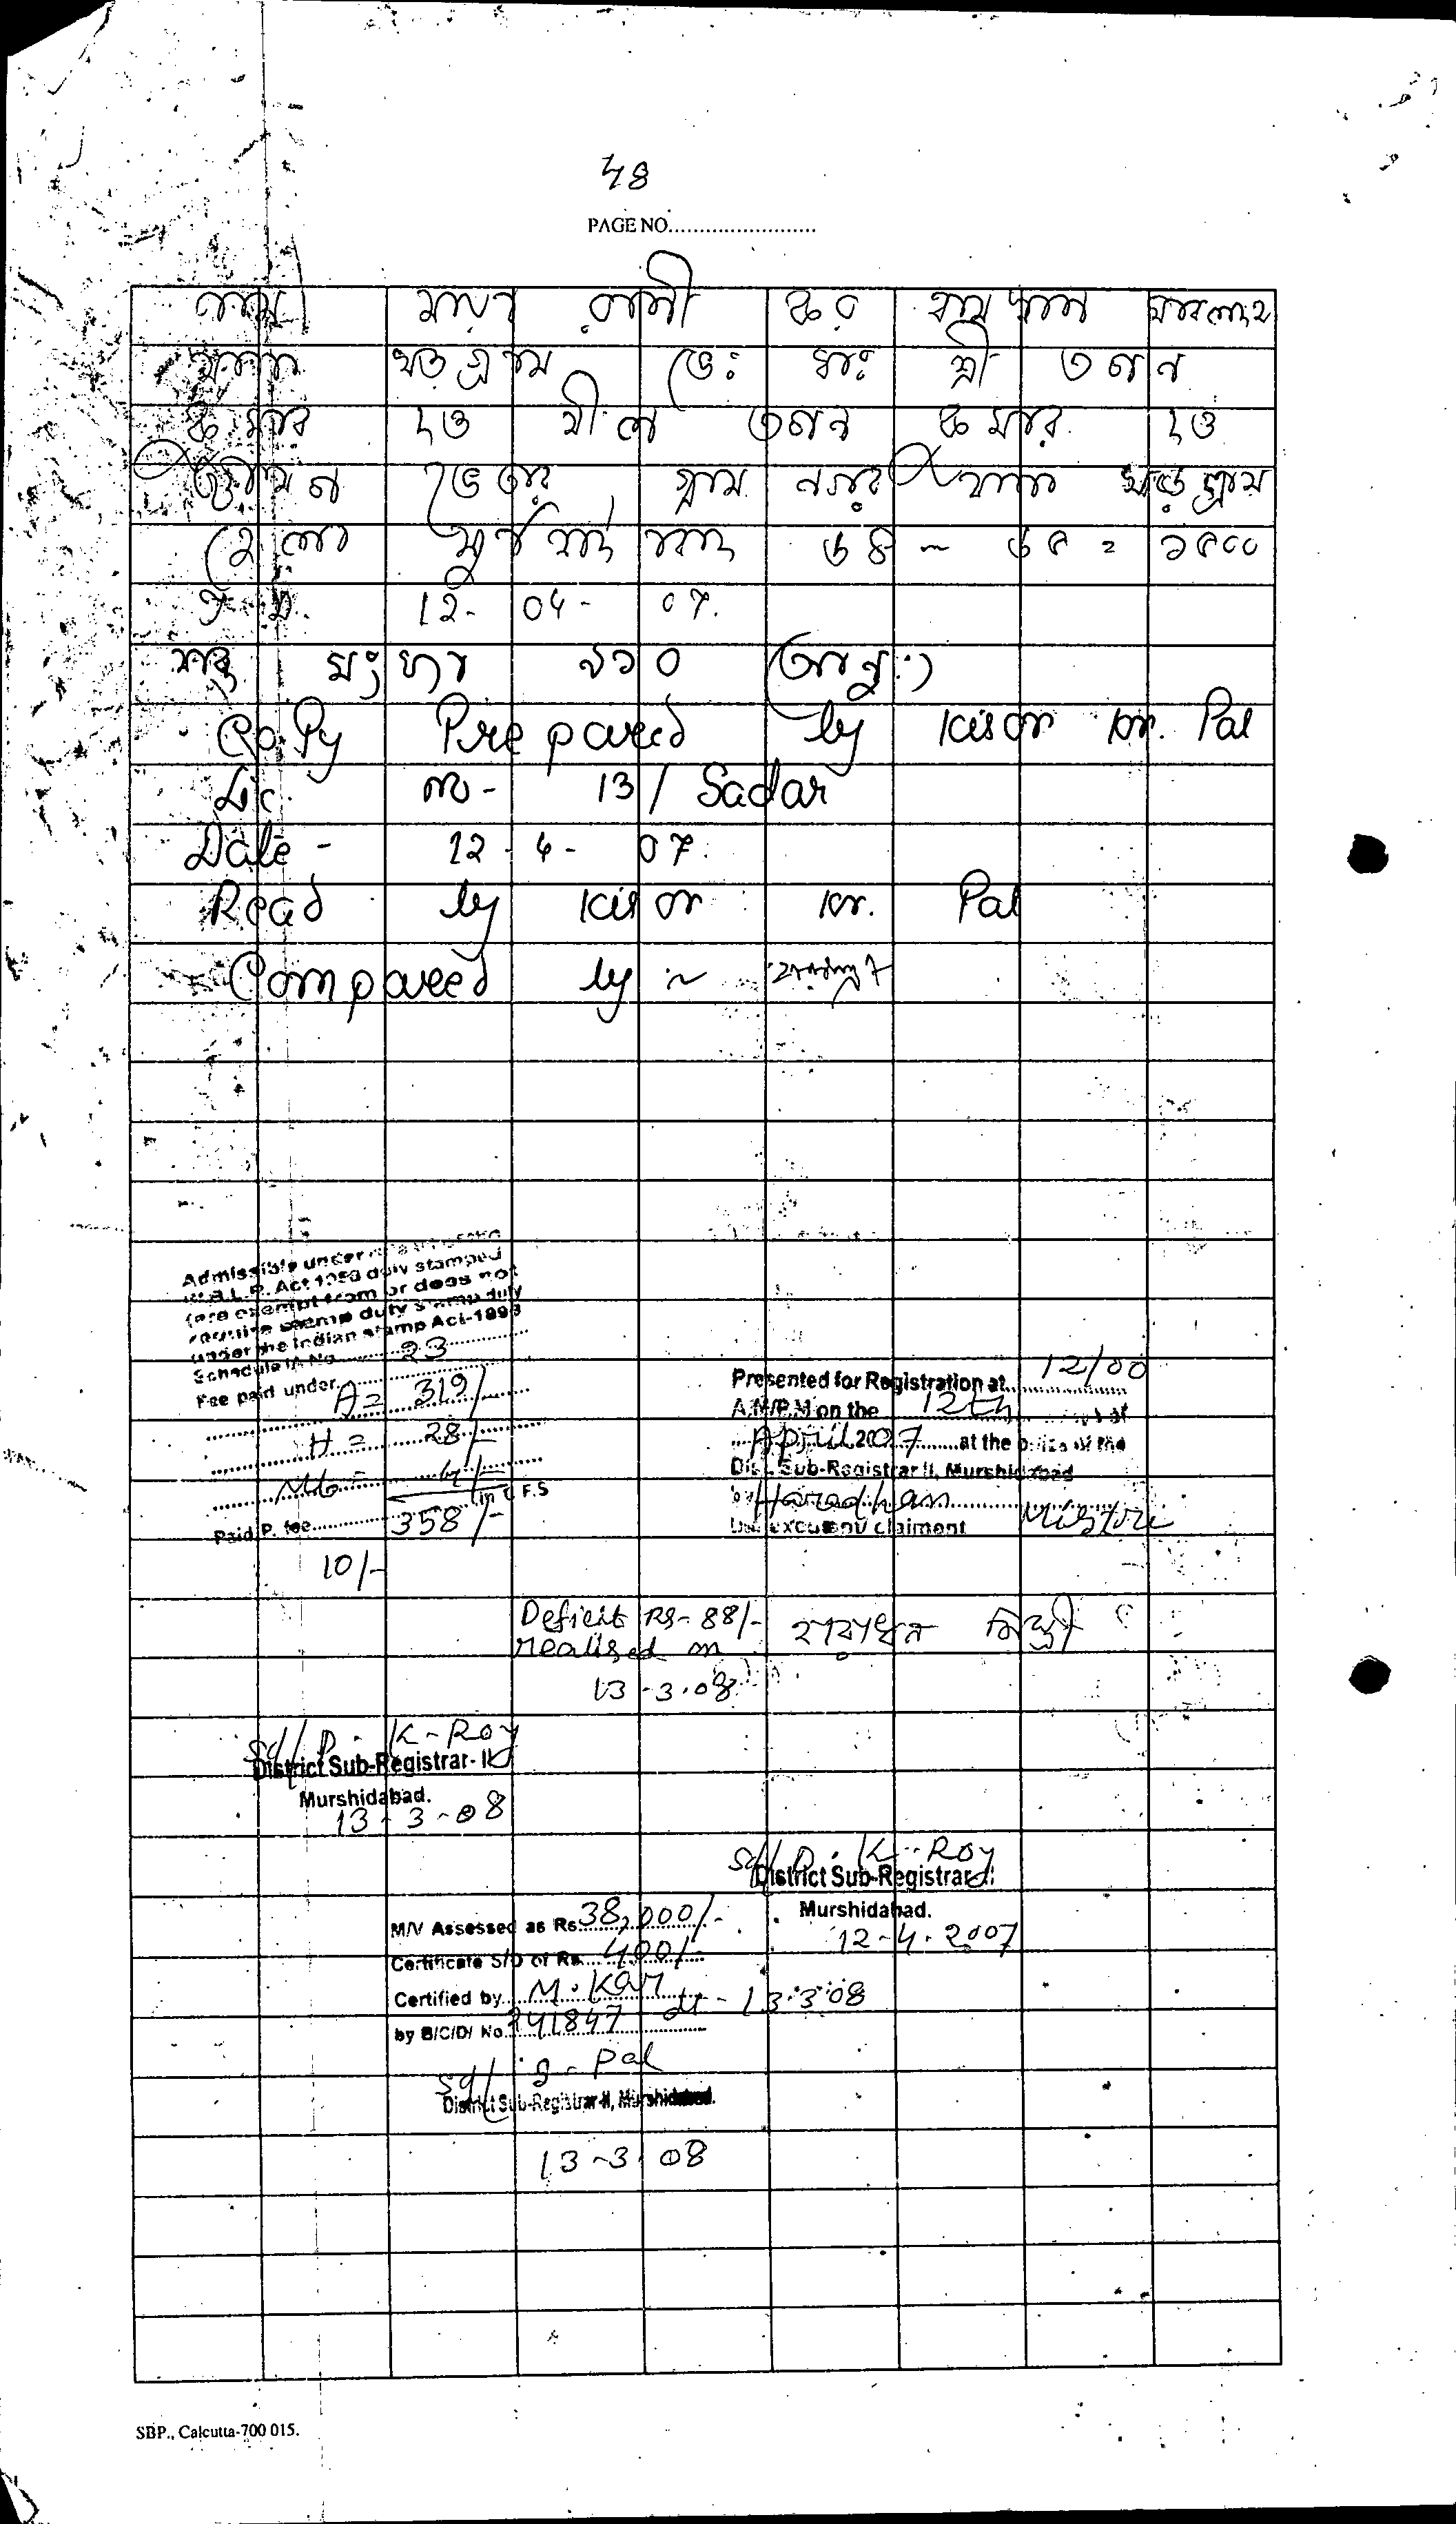 48
PAGE NO.........................
রানী কর
খড়গ্রাম ভেঃ শ্রী তপন
কুমার দত্ত তপন কুমার দত্ত
ভেন্ডার, গ্রাম নগর থানা খড়গ্রাম
জেলা মুর্শিদাবাদ ৬৪ ~ ৬৫ = ১৫০০
12- 04- 07.
শব্দ সংখ্যা ৯১০
Copy Prepared by Kisor Kr. Pal
Lic. no- 13/ Sadar
Date - 12-4-07.
Read by Kisor Kr. Pal
Compared by ~
Admissible under
W.B.L.R. Act 1950 duly stamped
(are exempt from or does not
require stamp duty stamp duty
under the Indian stamp Act-1899
Schedule IA No. 23
Fee paid under
A = 319/-
H = 28/-
Mb - 4/-
in C.F.S
Paid P. fee 358/-
10/-
Presented for Registration at 12/00
A.M/P.M on the 12th
April 2007 at the office of the
Dist. Sub-Registrar II, Murshidabad
by Haradhan Mistri
executant/ claiment
Deficit Rs- 88/-
realised on
13-3.08
হারাধন মিস্ত্রী
Sd/ D. K-Roy
District Sub-Registrar- II
Murshidabad.
13-3-08
Sd/ D. K-Roy
District Sub-Registrar-II
Murshidabad.
12-4-2007
M/V Assessed as Rs. 38,000/-
Certificate S/D of Rs. 400/-
Certified by M. Kar
by B/C/D/ No. 241847 dt- 13.3.08
Sd/ g- Pal
District Sub-Registrar-II, Murshidabad.
13-3-08
SBP., Calcutta-700 015.